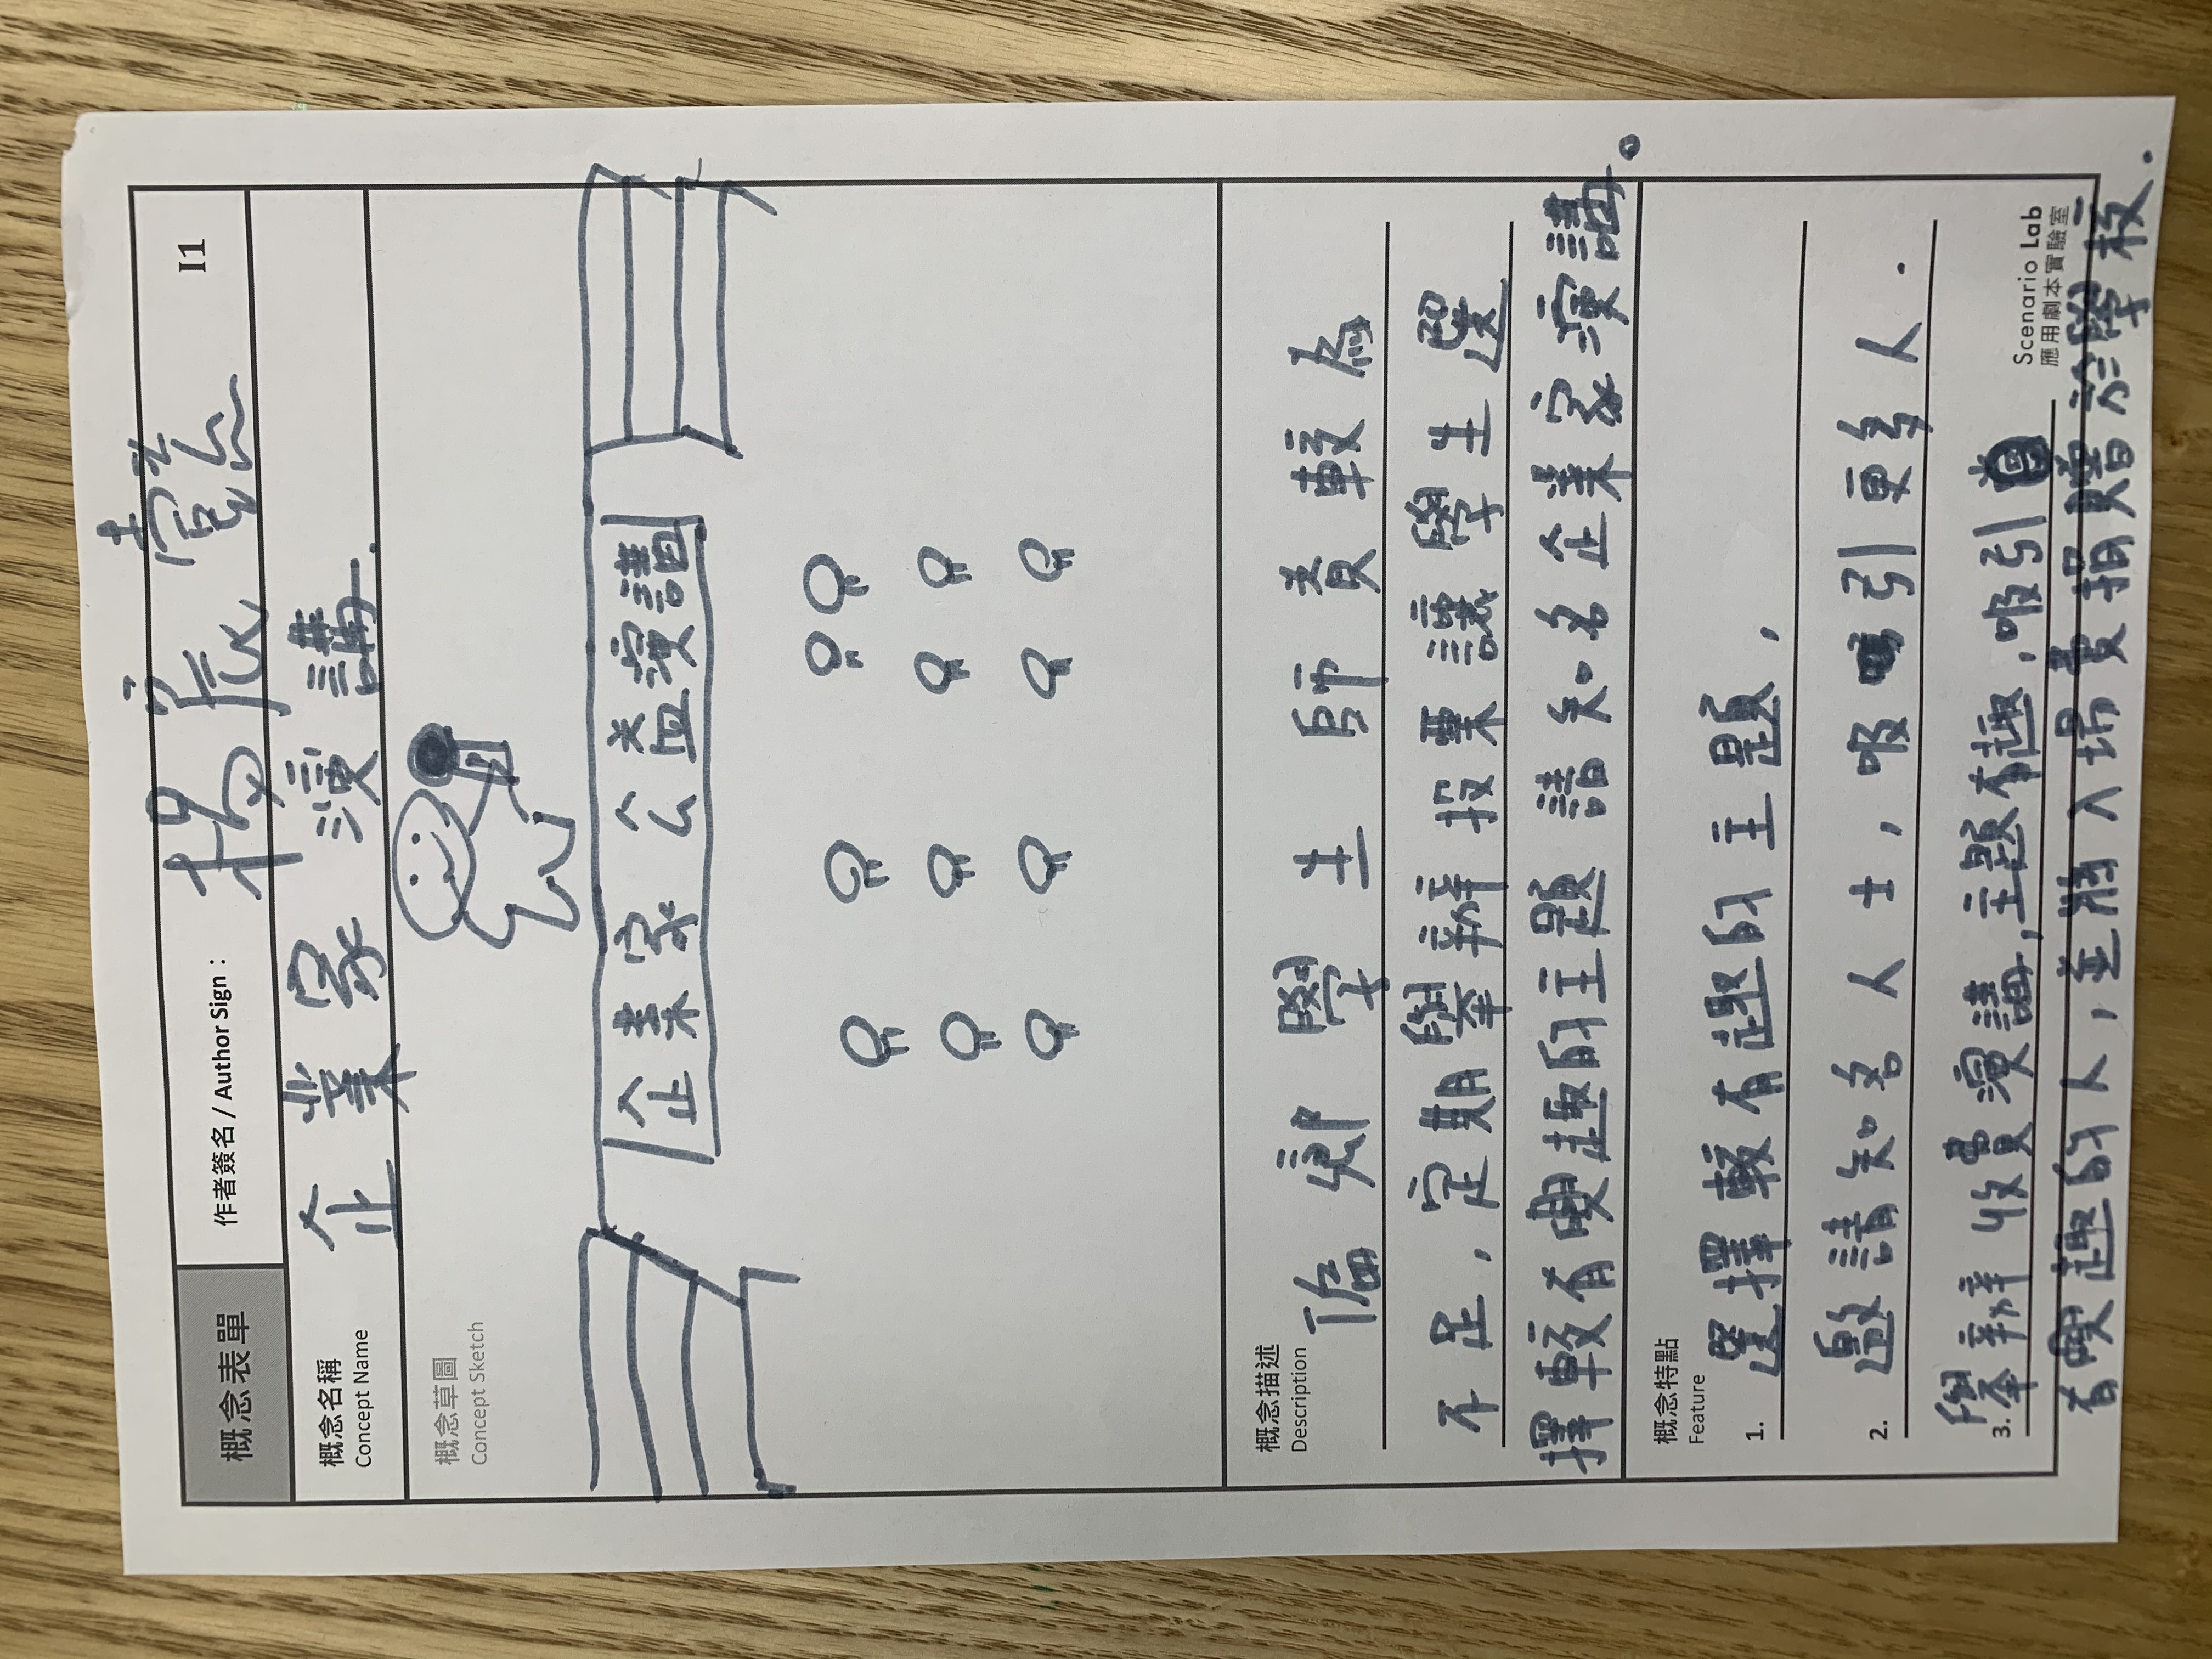 概念表單
作者簽名 / Author Sign：
楊宸懿
I1
概念名稱
Concept Name
企業家演講.
概念草圖
Concept Sketch
企業家 公益演講
概念描述
Description
偏鄉學生師資較為
不足,定期舉辦投票讓學生選
擇較有興趣的主題 請知名企業家演講。
概念特點
Feature
1. 選擇較有趣的主題,
2. 邀請知名人士,吸引更多人.
3. 舉辦收費演講,主題有趣,吸引
有興趣的人,並將入場費捐贈於學校.
Scenario Lab
應用劇本實驗室